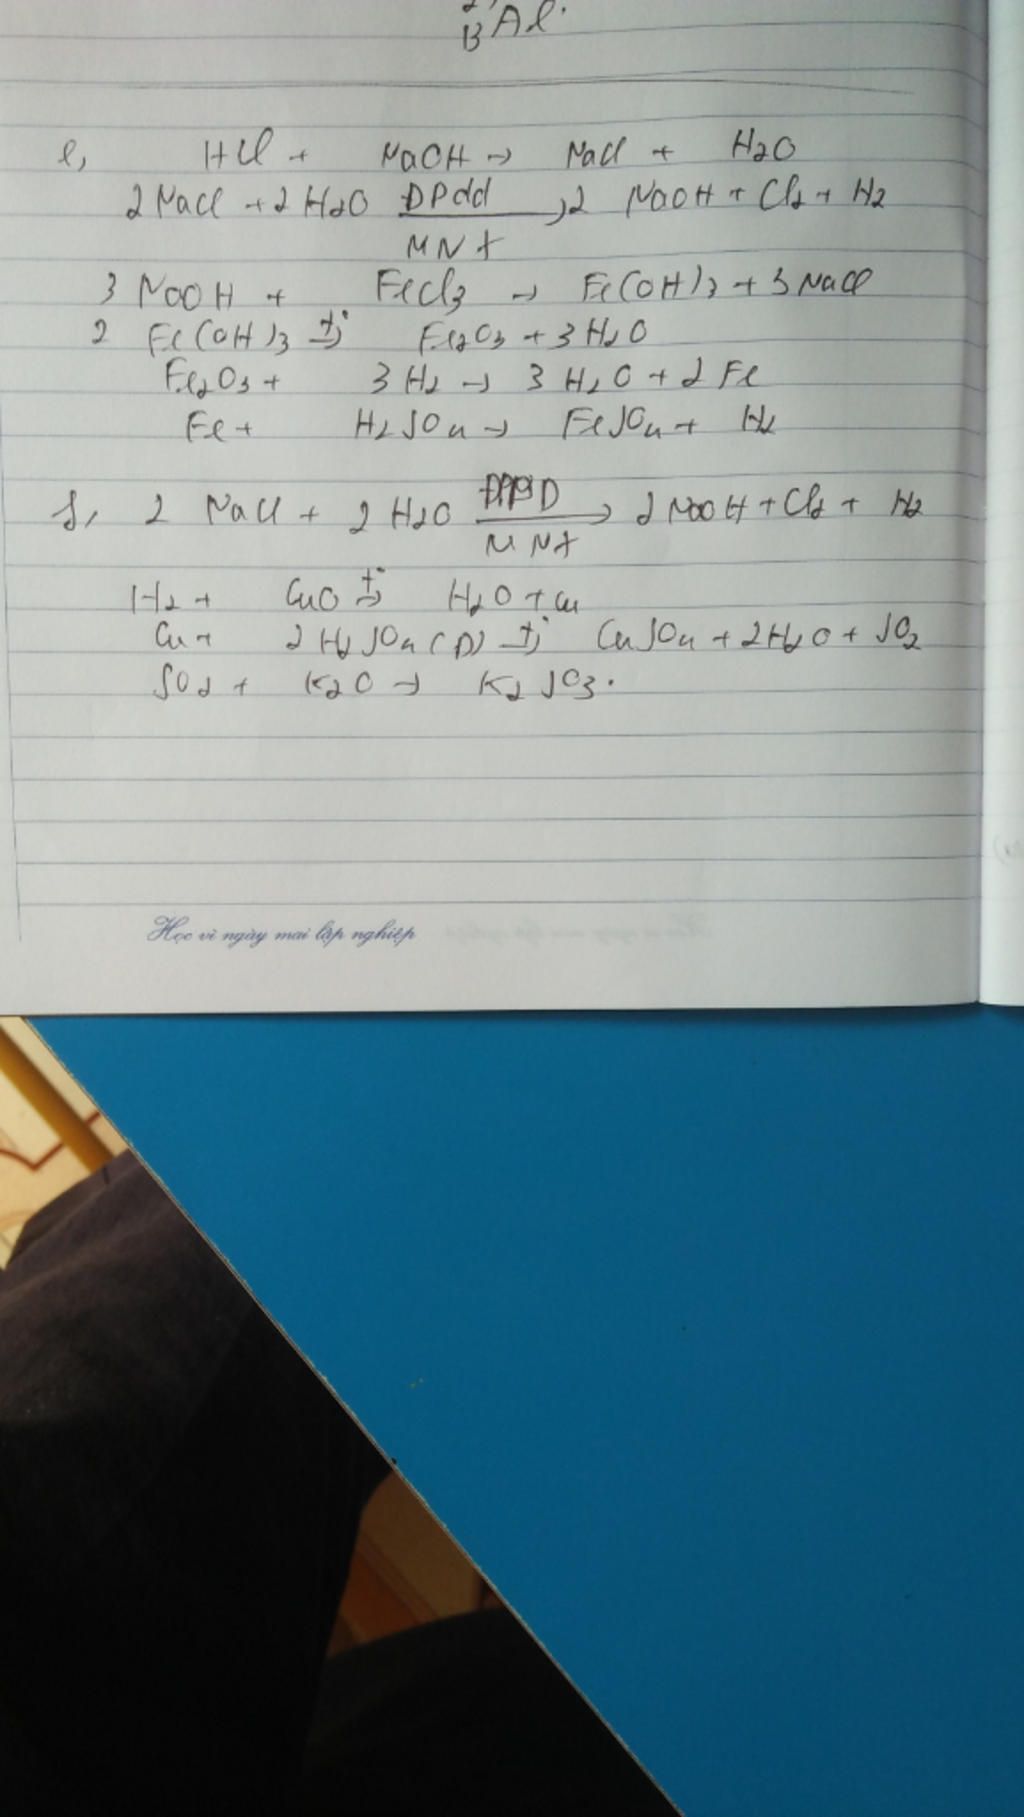 13 Al.
e, HCl + NaOH → NaCl + H2O
2 NaCl + 2 H2O DPdd → 2 NaOH + Cl2 + H2
MNX
3 NaOH + FeCl3 → Fe(OH)3 + 3 NaCl
2 Fe(OH)3 t° → Fe2O3 + 3 H2O
Fe2O3 + 3 H2 → 3 H2O + 2 Fe
Fe + H2SO4 → FeSO4 + H2
f, 2 NaCl + 2 H2O → 2 NaOH + Cl2 + H2
MNX
H2 + CuO t° → H2O + Cu
Cu + 2 H2SO4 (D) t° → CuSO4 + 2 H2O + SO2
SO2 + K2O → K2SO3.
Học vì ngày mai lập nghiệp